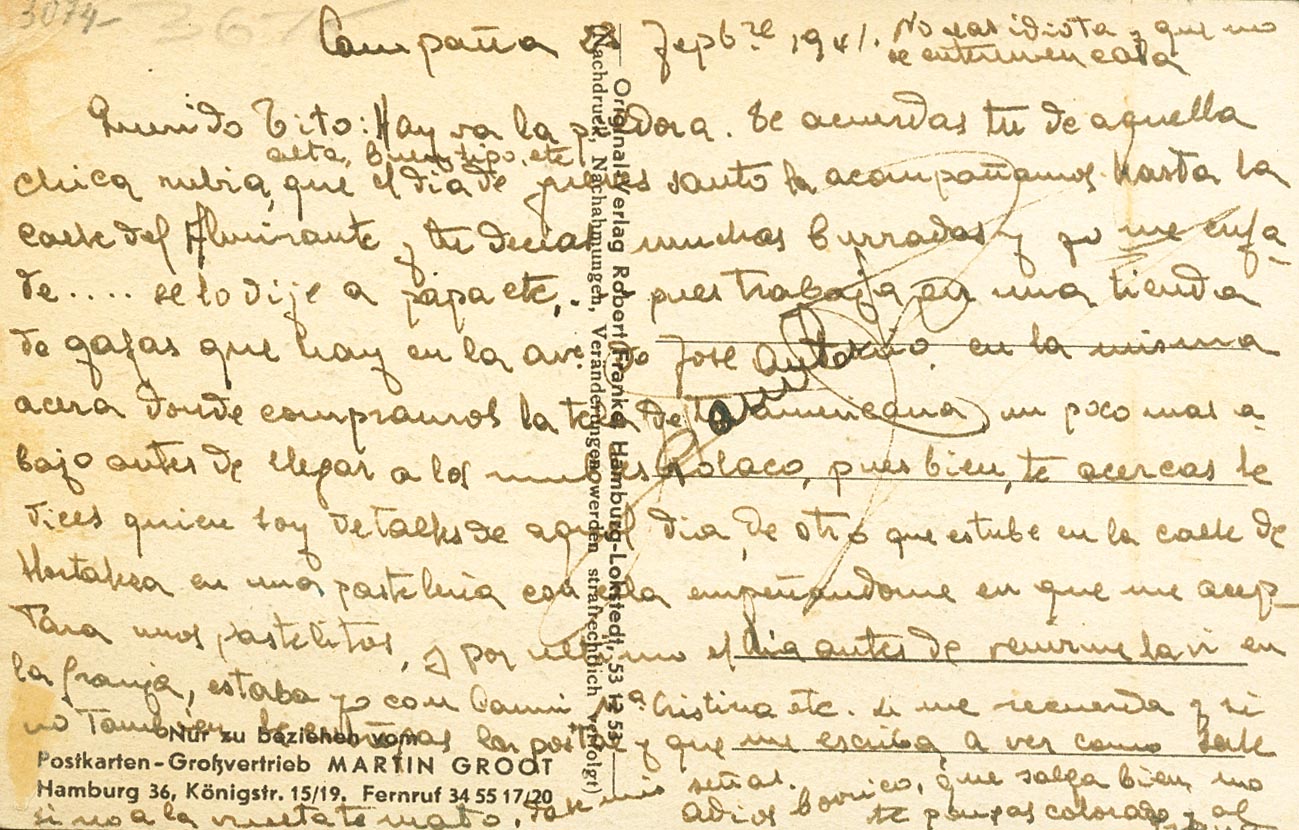 3074-
367-
Campaña 28 Sepbre 1941. No seas idiota y que no
se enteren en casa
Querido Tito: Hay va la p dora. te acuerdas tu de aquella
alta, buen tipo, etc
chica rubia, que el dia de jueves santo la acompañamos hasta la
calle del Almirante y tu decias muchas burradas y yo me enfa-
de..... se lo dije a papa etc,. pues trabaja en una tienda
de gafas que hay en la ave. de Jose Antonio. en la misma
acera donde compramos la tela de la americana un poco mas a-
bajo antes de llegar a los muebles Rolaco, pues bien, te acercas le
dices quien soy detalles de aquel dia, de otro que estube en la calle de
Hortaleza en una pasteleria con ella empeñandome en que me acep-
tara unos pastelitos, y por ultimo el dia antes de venirme la vi en
la granja, estaba yo con Cami Mª Cristina etc. si me recuerda y si
no tambien le entregas la postal y que me escriba a ver como sale
señas.
si no a la vuelta te mato, dale mis adios borrico, que salga bien no
te pongas colorado y al
Original-Verlag Robert Franke, Hamburg-Lokstedt, 53 12 53
(Nachdruck, Nachahmungen, Veränderungen werden strafrechtlich verfolgt)
Nur zu beziehen vom
Postkarten-Großvertrieb MARTIN GROOT
Hamburg 36, Königstr. 15/19. Fernruf 34 55 17/20